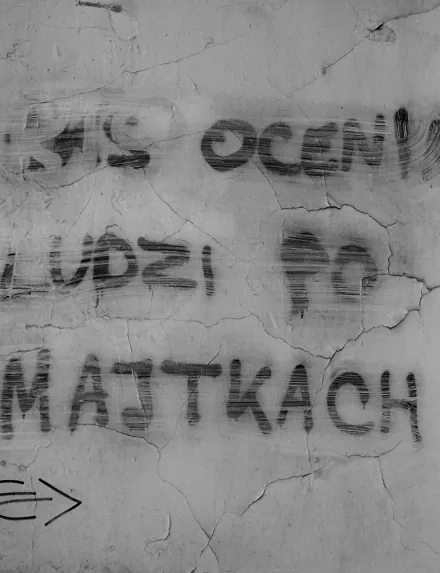 OCENI
LUDZI PO
MAJTKACH